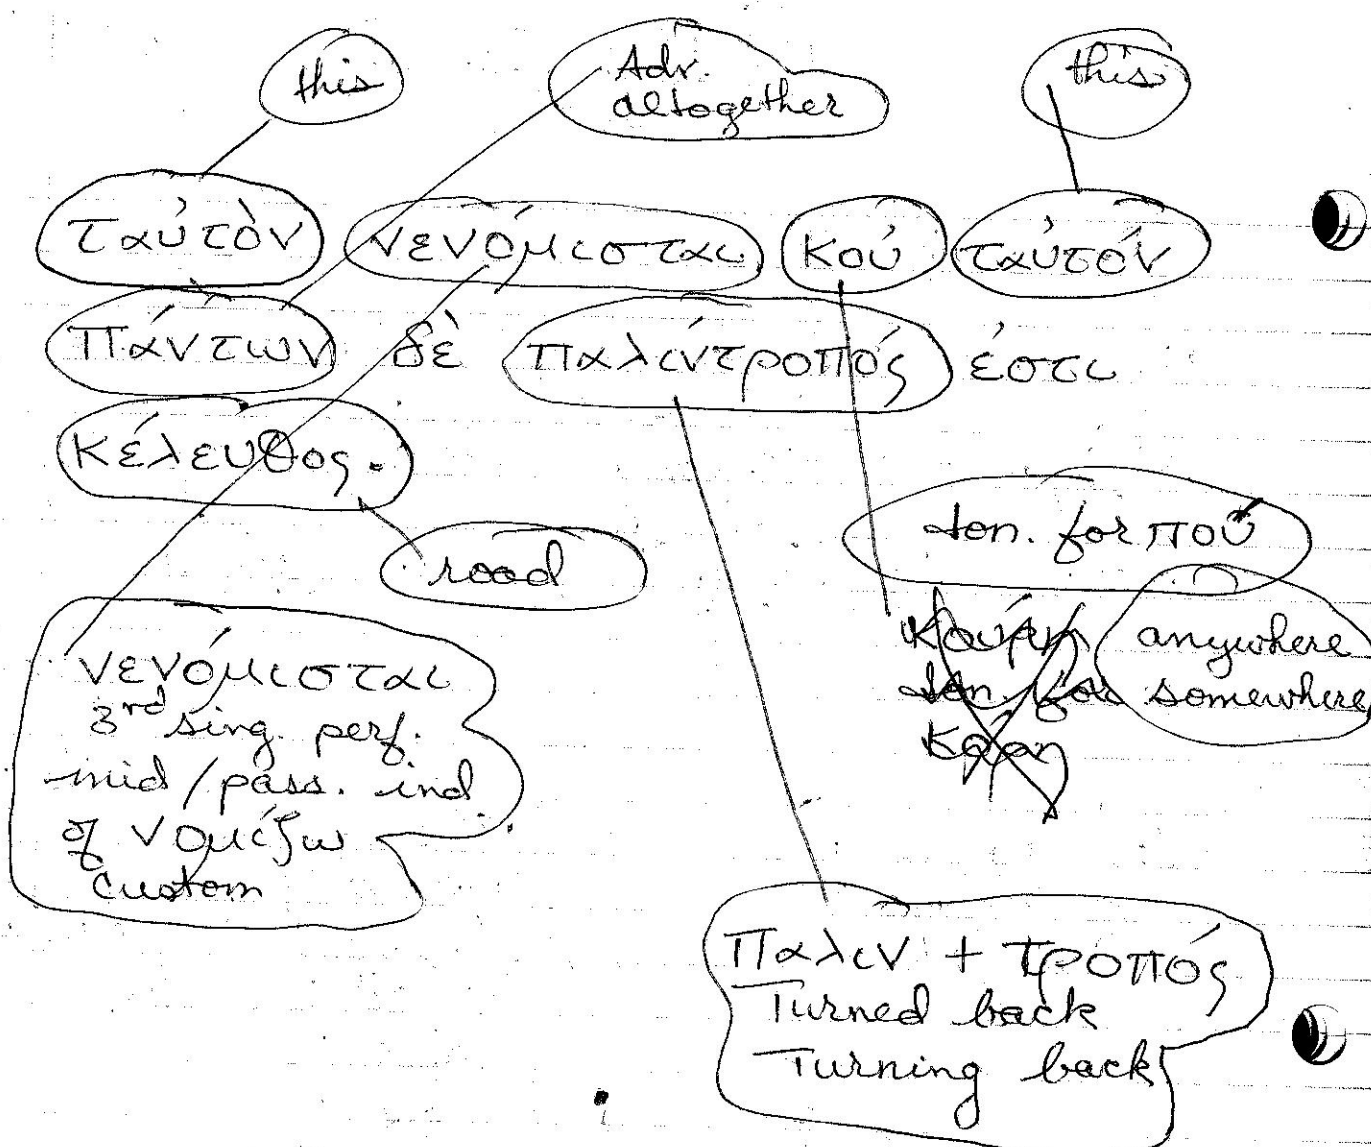 this
Adv.
altogether
this
ταὐτὸν νενόμισται κοὐ ταὐτόν
Πάντων δὲ παλίντροπός έστι
κέλευθος.
road
Ion. for ποὐ
anywhere
Ion. for somewhere
νενόμισται
3rd sing. perf.
mid/pass. ind.
of νομίζω
custom
Παλιν + τροπός
Turned back
Turning back